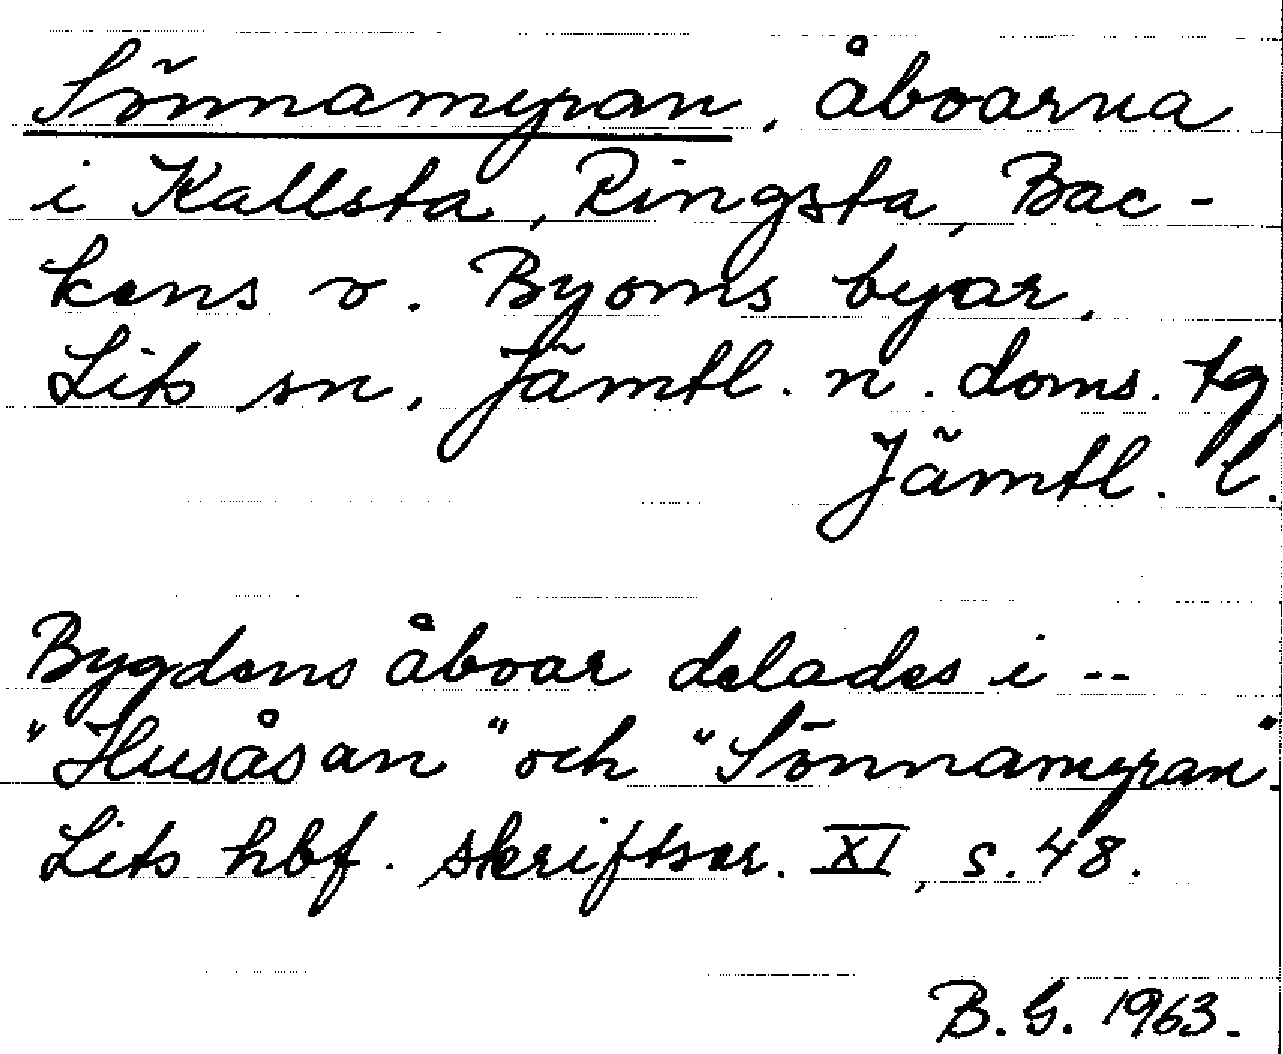 Sönnamyran, åboarna
i Kallsta, Ringsta, Bac-
kens o. Byoms byar,
Lits sn, Jämtl. n. doms. tg,
Jämtl. l.
Bygdens åboar delades i --
"Husåsan" och "Sönnamyran".
Lits hbf. skriftser. XI, s. 48.
B. G. 1963.